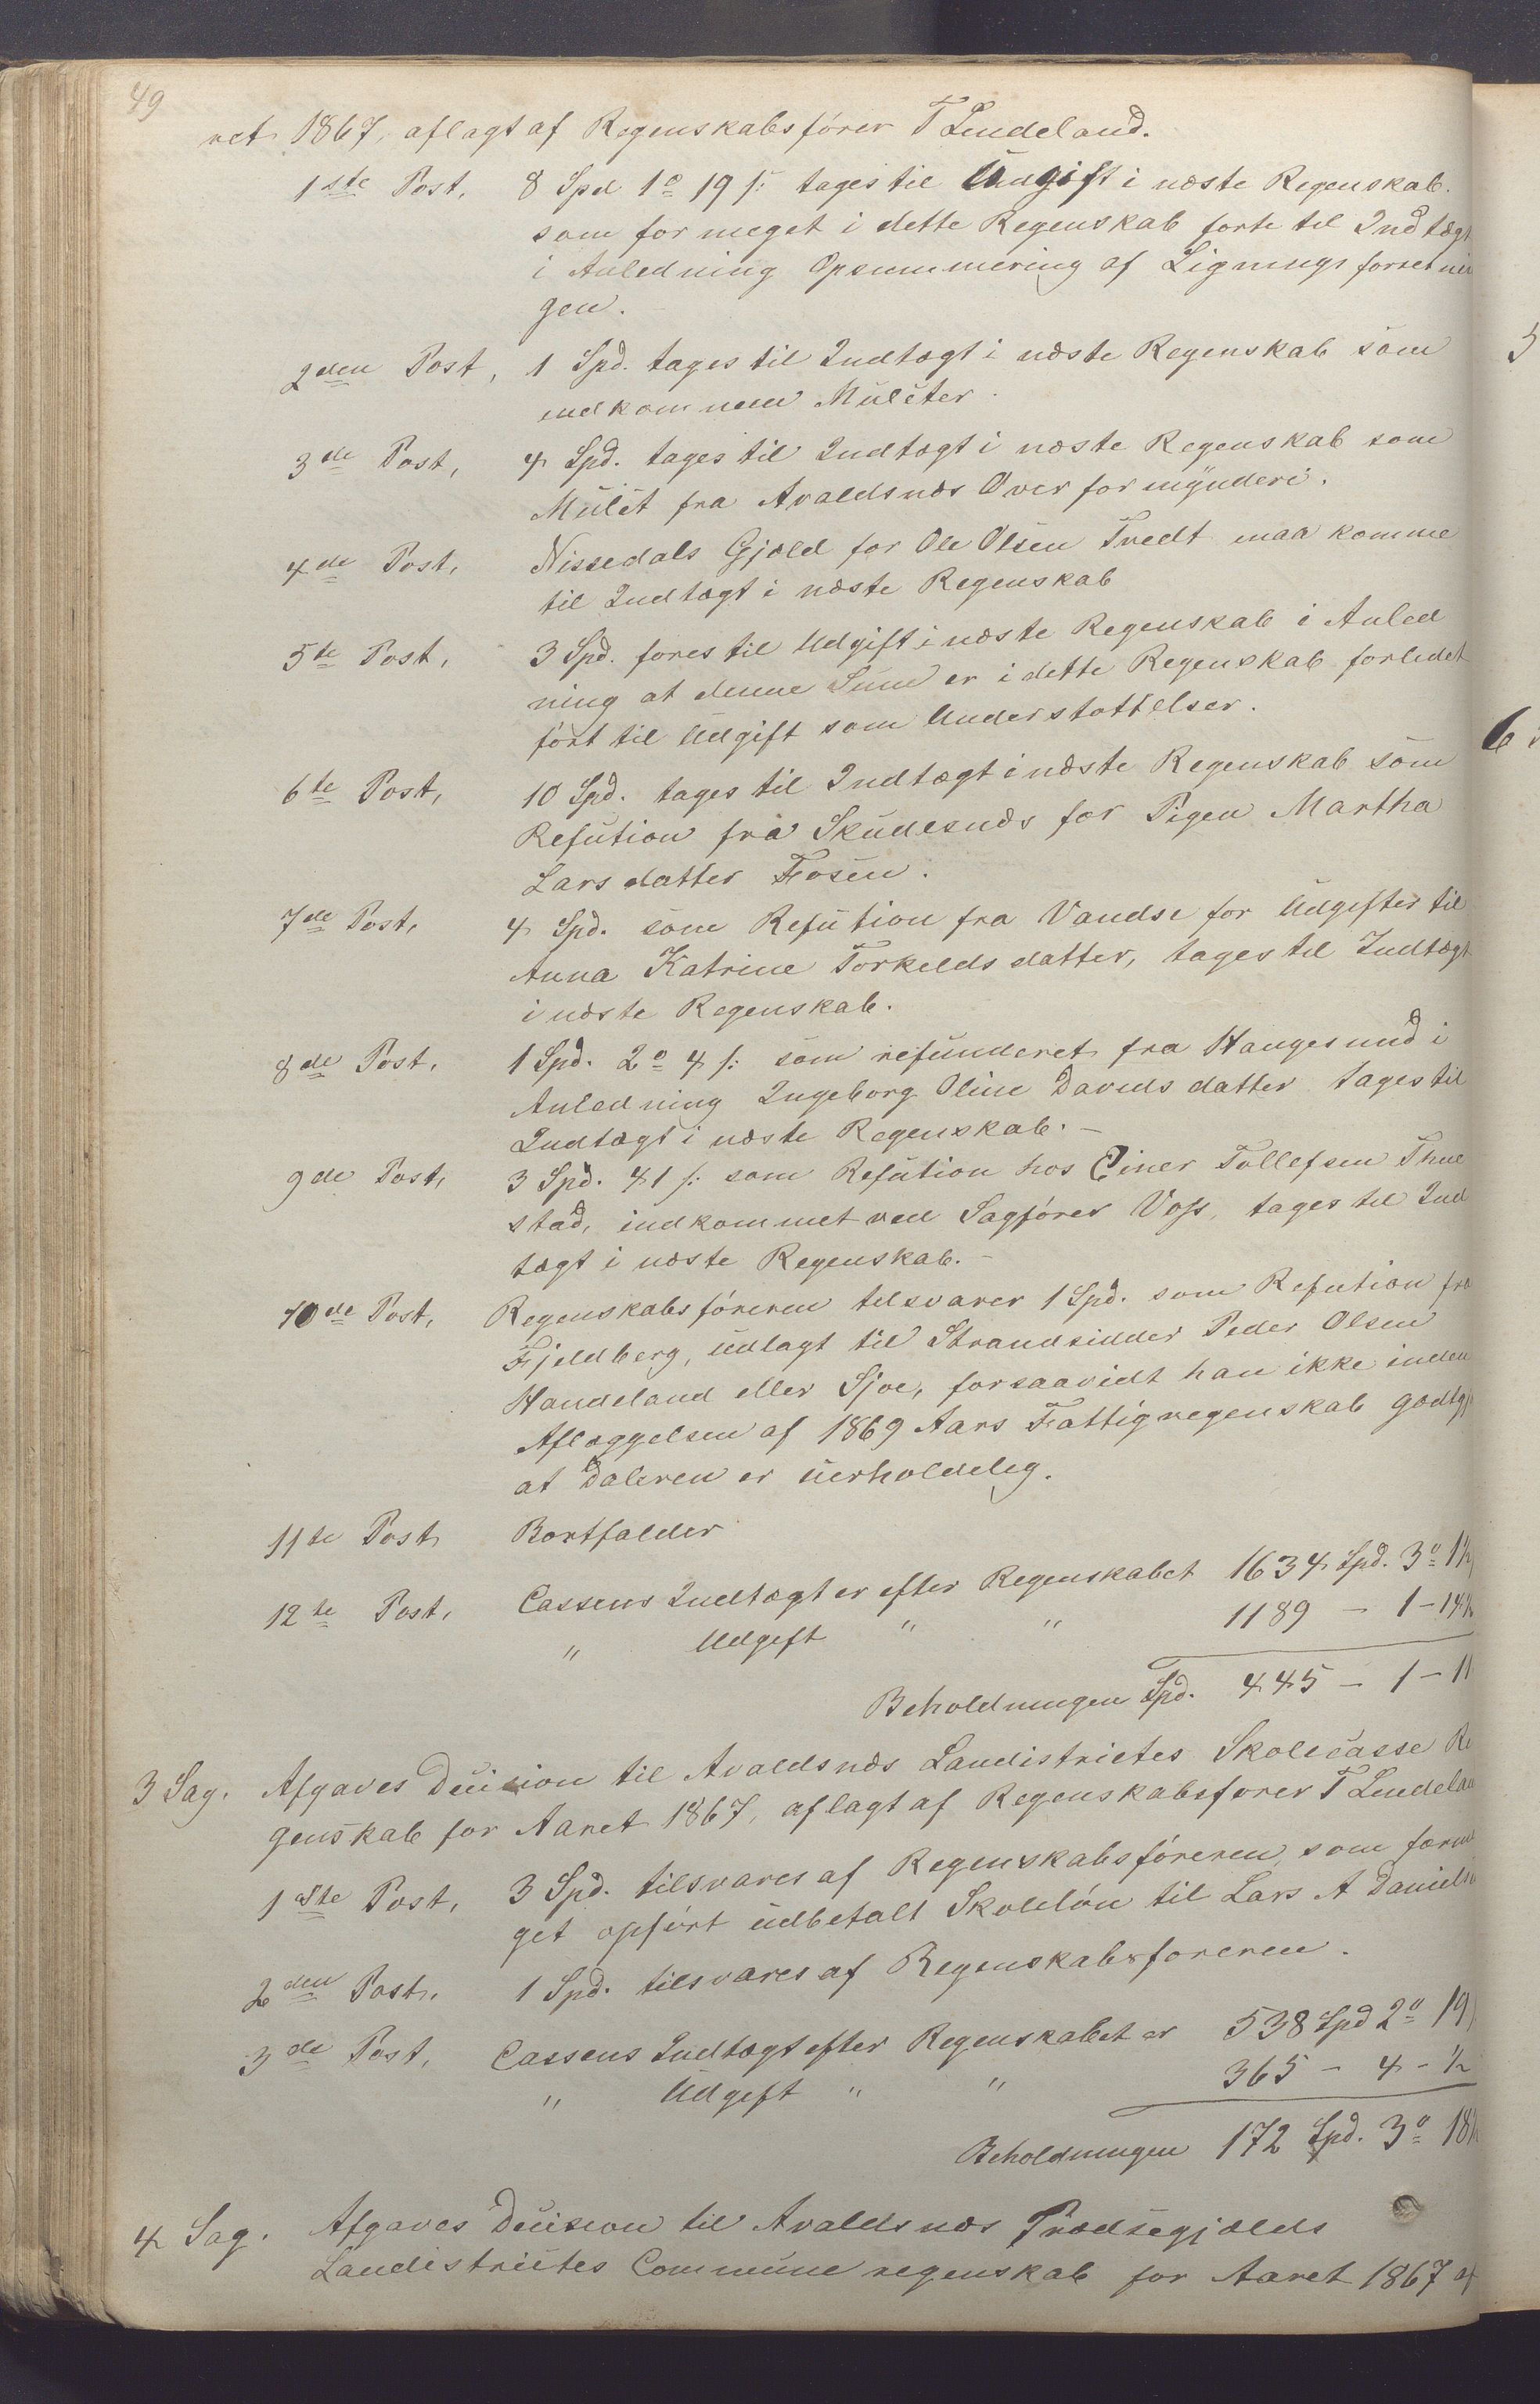 49
ret 1867, aflagt af Regenskabsfører T Lindeland.
1ste Post, 8 Spd 1o 19 s: tages til Udgift i næste Regenskab.
som for meget i dette Regenskab forte til Indtægt
i Anledning Opsummering af Lignings forretnin
gen.
2den Post, 1 Spd. tages til Indtægt i næste Regenskab som
indkommen Mulcter.
3de Post, 4 Spd. tages til Indtægt i næste Regenskab som
Mulct fra Avaldsnæs Overformynderi.
4de Post, Nissedals Gjæld for Ole Olsen Tvedt maa komme
til Indtægt i næste Regenskab
5te Post, 3 Spd. fores til Udgift i næste Regenskab i Anled
ning at denne Sum er i dette Regenskab forledet
ført til Udgift som Understøttelser.
6te Post, 10 Spd. tages til Indtægt i næste Regenskab som
Refution fra Skudesnæs for Pigen Martha
Larsdatter Fosen.
7de Post, 4 Spd. som Refution fra Vandse for Udgifter til
Anna Katrine Torkelds datter, tages til Indtægt
i næste Regenskab.
8de Post, 1 Spd. 2o 4 s: som refunderet fra Haugesund i
Anledning Ingeborg Oline Davids datter tages til
Indtægt i næste Regenskab. -
9de Post, 3 Spd. 41 s: som Refution hos Einer Tollefsen Thue
stad, indkommet ved Sagfører Voss, tages til Ind
tægt i næste Regenskab. -
10de Post, Regenskabsføreren tilsvarer 1 Spd. som Refution fra
Fjeldberg, udlagt til Strandsidder Peder Olsen
Handeland eller Sjoe, forsaavidt han ikke inden
Aflæggelsen af 1869 Aars Fattigregenskab godtgj
at Daleren er uerholdelig.
11te Post Bortfalder
12te Post, Cassens Indtægt er efter Regenskabet 1634 Spd. 3o 1½
" Udgift " " 1189 - 1 - 14½
Beholdningen Spd. 445 - 1 - 11
3 Sag. Afgaves Decision til Avaldsnæs Landistrictes Skolecasse Re
genskab for Aaret 1867, aflagt af Regenskabsfører T Lindelan
1ste Post, 3 Spd. tilsvares af Regenskabsføreren, som forme
get opført udbetalt Skoleløn til Lars A Daniels
2den Post, 1 Spd. tilsvares af Regenskabsføreren.
3de Post, Cassens Indtægt efter Regenskabet er 538 Spd 2o 19
" Udgift " " 365 - 4 - ½
Beholdningen 172 Spd. 3o 18½
4 Sag. Afgaves Decision til Avaldsnæs Prædstegjælds
Landistrictes Communeregenskab for Aaret 1867 af